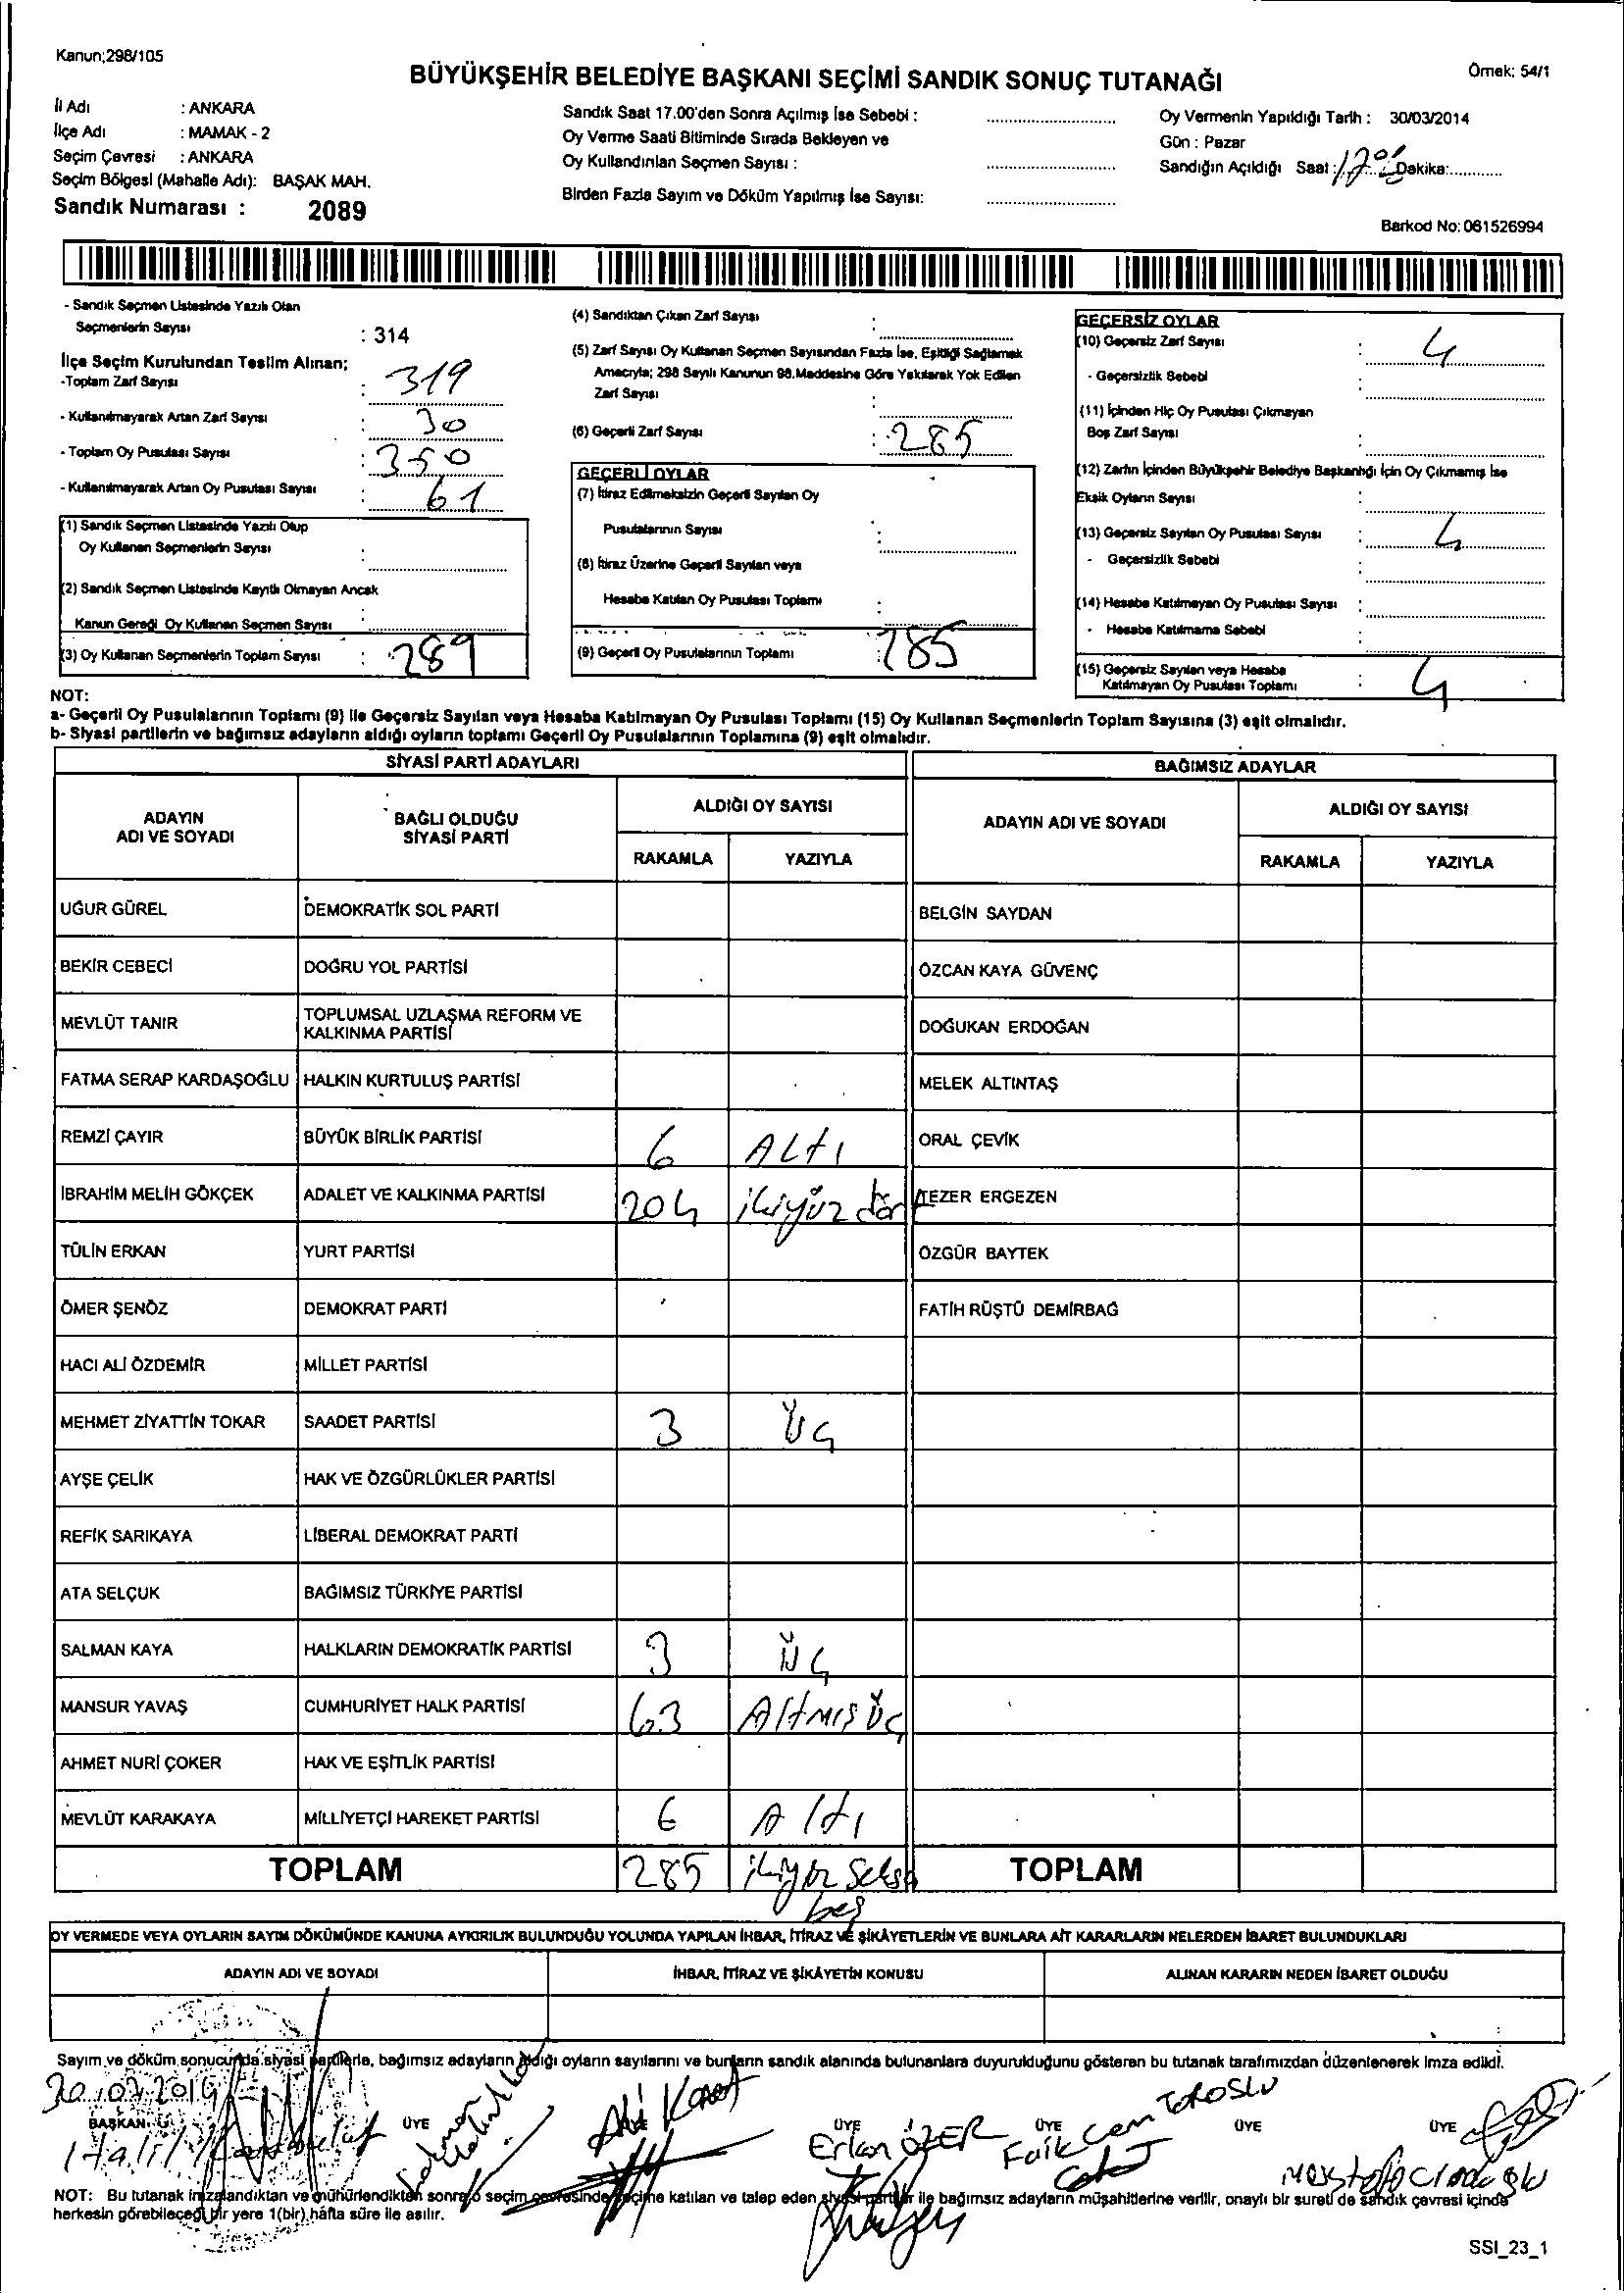 Kanun;298/105
Örnek: 54/1
BÜYÜKŞEHİR BELEDİYE BAŞKANI SEÇİMİ SANDIK SONUÇ TUTANAĞI
İl Adı : ANKARA
İlçe Adı : MAMAK - 2
Seçim Çevresi : ANKARA
Seçim Bölgesi (Mahalle Adı): BAŞAK MAH.
Sandık Numarası : 2089
Sandık Saat 17.00'den Sonra Açılmış İse Sebebi :
Oy Verme Saati Bitiminde Sırada Bekleyen ve
Oy Kullandırılan Seçmen Sayısı :
Birden Fazla Sayım ve Döküm Yapılmış İse Sayısı:
Oy Vermenin Yapıldığı Tarih : 30/03/2014
Gün : Pazar
Sandığın Açıldığı Saat : 17 00 Dakika:
Barkod No: 061526994
- Sandık Seçmen Listesinde Yazılı Olan
Seçmenlerin Sayısı : 314
İlçe Seçim Kurulundan Teslim Alınan;
-Toplam Zarf Sayısı : 319
- Kullanılmayarak Artan Zarf Sayısı : 30
- Toplam Oy Pusulası Sayısı : 350
- Kullanılmayarak Artan Oy Pusulası Sayısı : 61
(1) Sandık Seçmen Listesinde Yazılı Olup
Oy Kullanan Seçmenlerin Sayısı :
(2) Sandık Seçmen Listesinde Kayıtlı Olmayan Ancak
Kanun Gereği Oy Kullanan Seçmen Sayısı :
(3) Oy Kullanan Seçmenlerin Toplam Sayısı : 289
(4) Sandıktan Çıkan Zarf Sayısı :
(5) Zarf Sayısı Oy Kullanan Seçmen Sayısından Fazla İse, Eşitliği Sağlamak
Amacıyla; 298 Sayılı Kanunun 98.Maddesine Göre Yakılarak Yok Edilen
Zarf Sayısı :
(6) Geçerli Zarf Sayısı : 285
GEÇERLİ OYLAR
(7) İtiraz Edilmeksizin Geçerli Sayılan Oy
Pusulalarının Sayısı :
(8) İtiraz Üzerine Geçerli Sayılan veya
Hesaba Katılan Oy Pusulası Toplamı :
(9) Geçerli Oy Pusulalarının Toplamı : 285
GEÇERSİZ OYLAR
(10) Geçersiz Zarf Sayısı : 4
- Geçersizlik Sebebi :
(11) İçinden Hiç Oy Pusulası Çıkmayan
Boş Zarf Sayısı :
(12) Zarfın İçinden Büyükşehir Belediye Başkanlığı İçin Oy Çıkmamış İse
Eksik Oyların Sayısı :
(13) Geçersiz Sayılan Oy Pusulası Sayısı : 4
- Geçersizlik Sebebi :
(14) Hesaba Katılmayan Oy Pusulası Sayısı :
- Hesaba Katılmama Sebebi :
(15) Geçersiz Sayılan veya Hesaba
Katılmayan Oy Pusulası Toplamı : 4
NOT:
a- Geçerli Oy Pusulalarının Toplamı (9) ile Geçersiz Sayılan veya Hesaba Katılmayan Oy Pusulası Toplamı (15) Oy Kullanan Seçmenlerin Toplam Sayısına (3) eşit olmalıdır.
b- Siyasi partilerin ve bağımsız adayların aldığı oyların toplamı Geçerli Oy Pusulalarının Toplamına (9) eşit olmalıdır.
SİYASİ PARTİ ADAYLARI BAĞIMSIZ ADAYLAR
ADAYIN ADI VE SOYADI BAĞLI OLDUĞU SİYASİ PARTİ ALDIĞI OY SAYISI ADAYIN ADI VE SOYADI ALDIĞI OY SAYISI
RAKAMLA YAZIYLA RAKAMLA YAZIYLA
UĞUR GÜREL DEMOKRATİK SOL PARTİ BELGİN SAYDAN
BEKİR CEBECİ DOĞRU YOL PARTİSİ ÖZCAN KAYA GÜVENÇ
MEVLÜT TANIR TOPLUMSAL UZLAŞMA REFORM VE KALKINMA PARTİSİ DOĞUKAN ERDOĞAN
FATMA SERAP KARDAŞOĞLU HALKIN KURTULUŞ PARTİSİ MELEK ALTINTAŞ
REMZİ ÇAYIR BÜYÜK BİRLİK PARTİSİ 6 ALtı ORAL ÇEVİK
İBRAHİM MELİH GÖKÇEK ADALET VE KALKINMA PARTİSİ 204 ikiyüz dört TEZER ERGEZEN
TÜLİN ERKAN YURT PARTİSİ ÖZGÜR BAYTEK
ÖMER ŞENÖZ DEMOKRAT PARTİ FATİH RÜŞTÜ DEMİRBAĞ
HACI ALİ ÖZDEMİR MİLLET PARTİSİ
MEHMET ZİYATTİN TOKAR SAADET PARTİSİ 3 ÜÇ
AYŞE ÇELİK HAK VE ÖZGÜRLÜKLER PARTİSİ
REFİK SARIKAYA LİBERAL DEMOKRAT PARTİ
ATA SELÇUK BAĞIMSIZ TÜRKİYE PARTİSİ
SALMAN KAYA HALKLARIN DEMOKRATİK PARTİSİ 3 ÜÇ
MANSUR YAVAŞ CUMHURİYET HALK PARTİSİ 63 Altmış üç
AHMET NURİ ÇOKER HAK VE EŞİTLİK PARTİSİ
MEVLÜT KARAKAYA MİLLİYETÇİ HAREKET PARTİSİ 6 Altı
TOPLAM 285 ikiyüz seksen beş TOPLAM
OY VERMEDE VEYA OYLARIN SAYIM DÖKÜMÜNDE KANUNA AYKIRILIK BULUNDUĞU YOLUNDA YAPILAN İHBAR, İTİRAZ VE ŞİKÂYETLERİN VE BUNLARA AİT KARARLARIN NELERDEN İBARET BULUNDUKLARI
ADAYIN ADI VE SOYADI İHBAR, İTİRAZ VE ŞİKÂYETİN KONUSU ALINAN KARARIN NEDEN İBARET OLDUĞU
Sayım ve döküm sonucunda siyasi partilerle, bağımsız adayların aldığı oyların sayılarını ve bunların sandık alanında bulunanlara duyurulduğunu gösteren bu tutanak tarafımızdan düzenlenerek imza edildi.
30.03.2014
BAŞKAN ÜYE ÜYE ÜYE ÜYE ÜYE ÜYE
Halil
Ali
Erkan ÖZER
Faik Cem TOROSLU
NOT: Bu tutanak imzalandıktan ve mühürlendikten sonra, o seçim çevresinde seçime katılan ve talep eden siyasi partiler ile bağımsız adayların müşahitlerine verilir, onaylı bir sureti de sandık çevresi içinde
herkesin görebileceği bir yere 1(bir) hafta süre ile asılır.
SSI_23_1